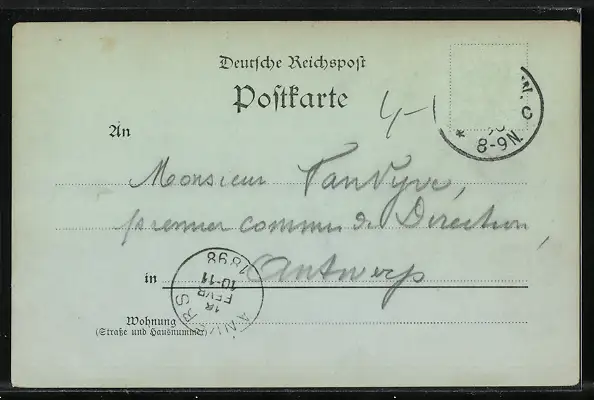 Deutsche Reichspost
Postkarte
4-1
N. C
* 8-9N.
An
Monsieur VanVyve,
premier commis de Direction,
in Antwerp
ANVERS
18
FEVR
10-11
1898
Wohnung
(Straße und Hausnummer)